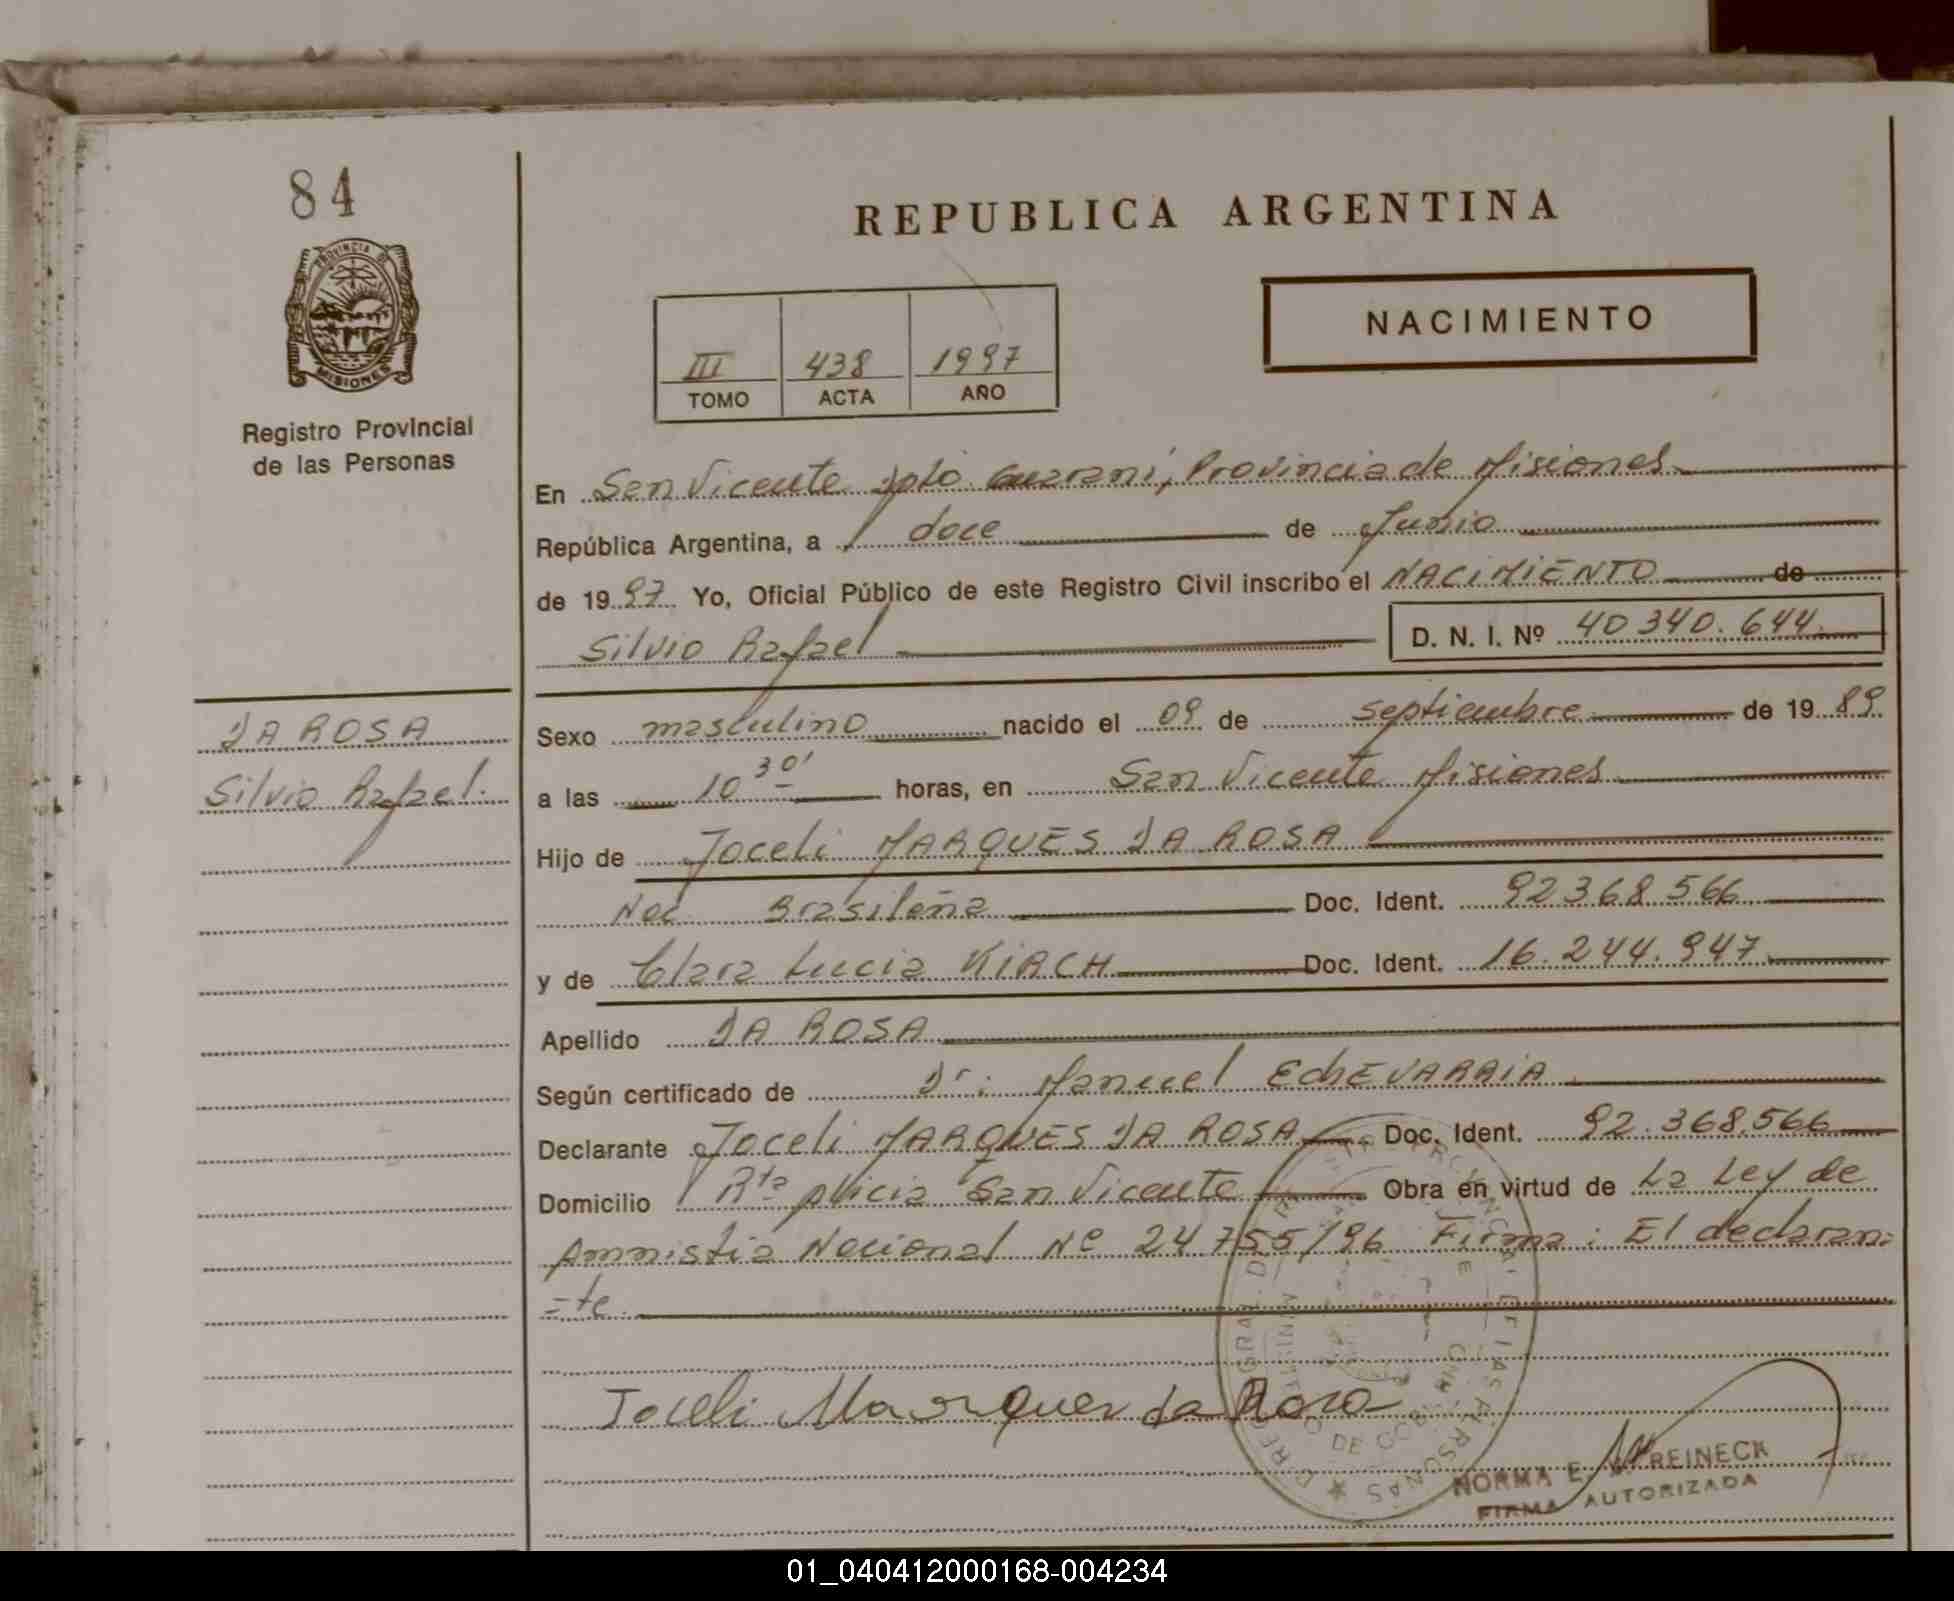 84
PROVINCIA DE
MISIONES
Registro Provincial
de las Personas
REPUBLICA ARGENTINA
NACIMIENTO
III 438 1997
TOMO ACTA AÑO
En San Vicente Dpto. Guarani, Provincia de Misiones
República Argentina, a doce de Junio
de 1997 Yo, Oficial Público de este Registro Civil inscribo el NACIMIENTO de
Silvio Rafael D. N. I. Nº 40340.644
DA ROSA
Silvio Rafael.
Sexo masculino nacido el 09 de septiembre de 1989
a las 10 30' horas, en San Vicente Misiones
Hijo de Joceli MARQUES DA ROSA
Nac Brasileña Doc. Ident. 92368.566
y de Clara Lucia KIRCH Doc. Ident. 16.244.947
Apellido DA ROSA
Según certificado de Dr: Manuel EchEVARRIA
Declarante Joceli MARQUES DA ROSA Doc. Ident. 92.368.566
Domicilio San Vicente Obra en virtud de La Ley de
Amnistia Nacional Nº 24755/96 Firma: El declaran=
=te
Joceli Marques da Rosa
NORMA E. REINECK
FIRMA AUTORIZADA
01_040412000168-004234